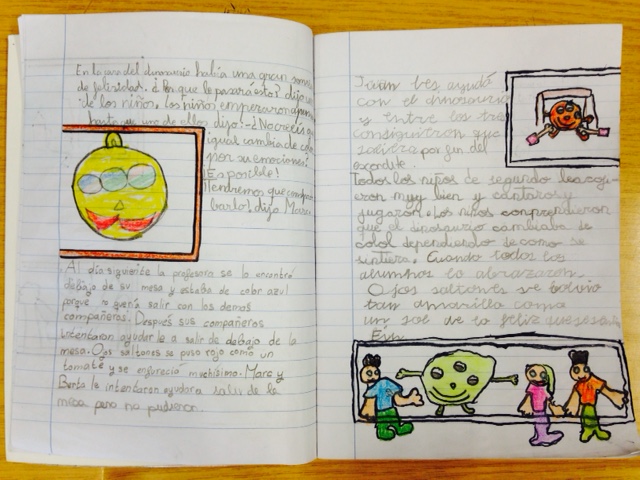 En la cara del dinosaurio había una gran sonrisa
de felicidad. ¿Por que le pasará esto? dijo uno
de los niños. Los niños empezaron a
hasta que uno de ellos dijo:-¿No creeis que
igual cambia de color
por su emociones?
¡Es posible!
¡Tendremos que comprobarlo! dijo Marc.
Al día siguiente la profesora se lo encontró
debajo de su mesa y estaba de color azul
porque no quería salir con los demas
compañeros. Después sus compañeros
intentaron ayudarle a salir de debajo de la
mesa. Ojos saltones se puso rojo como un
tomate y se enfureció muchisimo. Marc y
Berta le intentaron ayudar a salir de la
mesa pero no pudieron.
Juan les ayudó
con el dinosaurio
y entre los tres
consiguieron que
saliera por fin del
escondite.
Todos los niños de segundo les
muy bien y cantaron y
jugaron. Los niños comprendieron
que el dinosaurio cambiaba de
color dependiendo de como se
sintiera. Cuando todos los
alumnos lo abrazaron.
Ojos saltones se volvio
tan amarillo como
un sol de lo feliz que
Fin